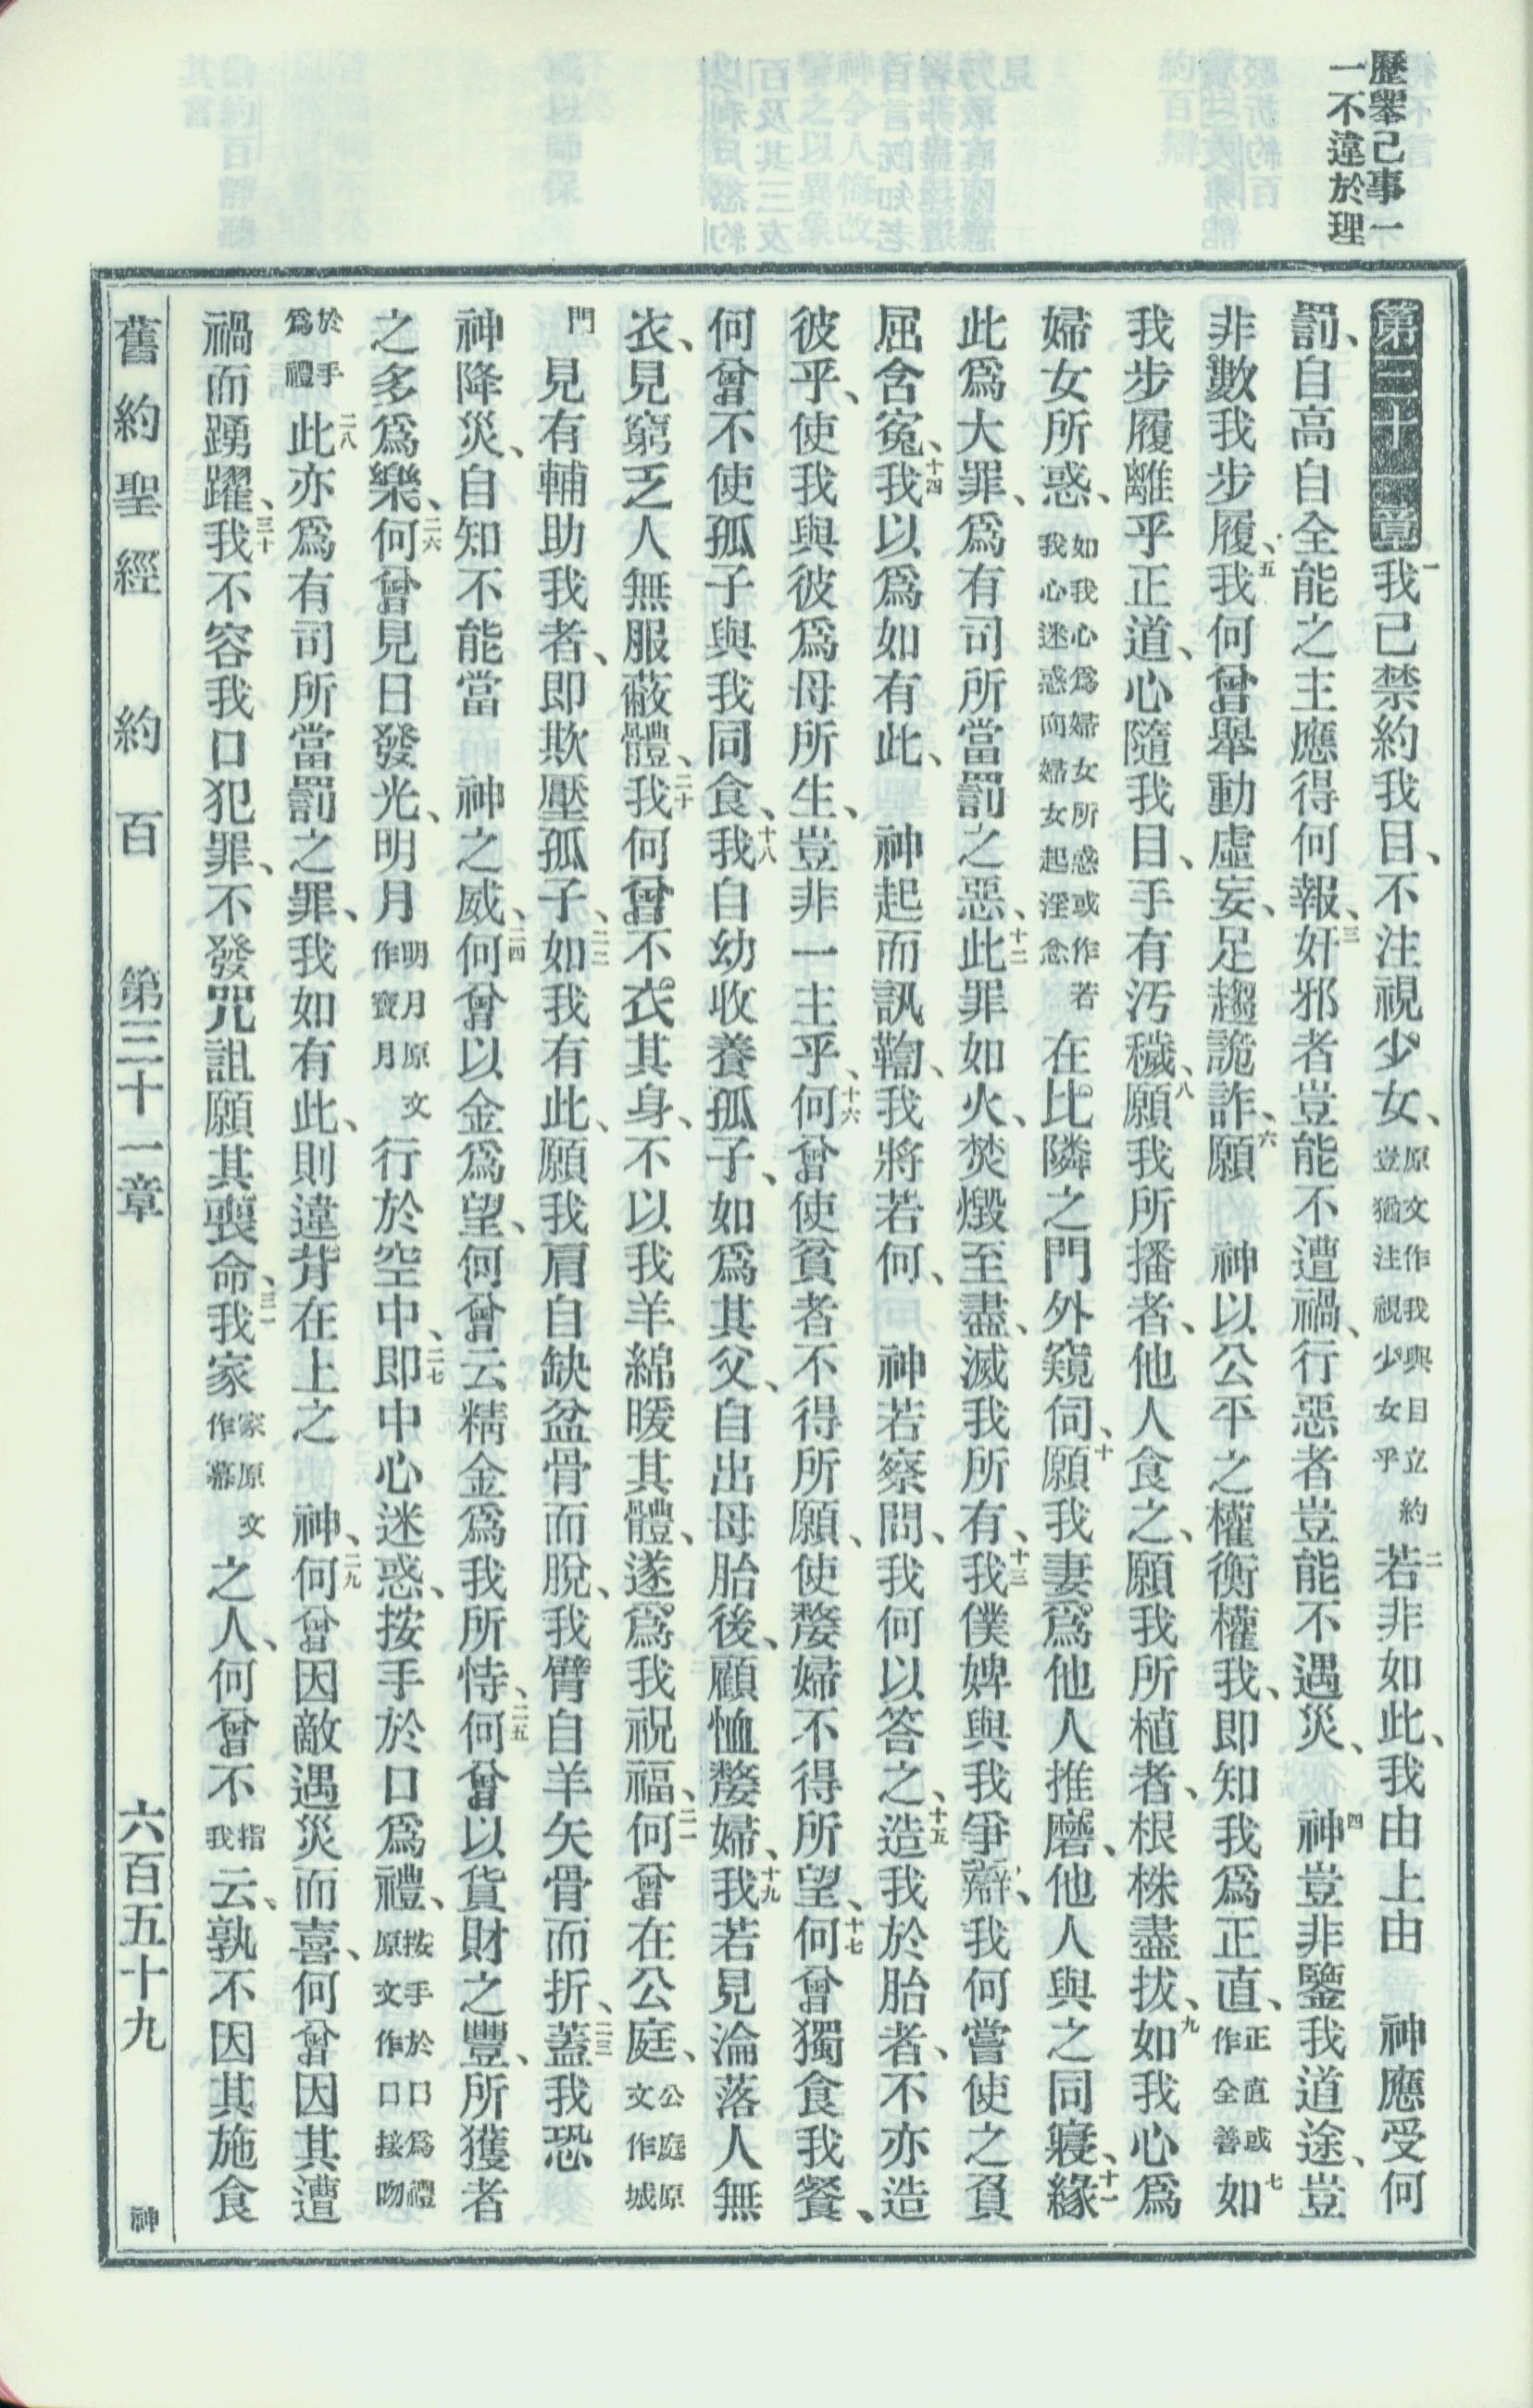 歷舉己事一
一不違於理
第三十一章一我已禁約我目、不注視少女、原文作我與目立約豈猶注視少女乎二若非如此、我由上由　神應受何
罰、自高自全能之主應得何報、三奸邪者豈能不遭禍、行惡者豈能不遇災、四神豈非鑒我道途、豈
非數我步履、五我何曾舉動虛妄、足趨詭詐、六願　神以公平之權衡權我、即知我爲正直、正直或作全善七如
我步履離乎正道、心隨我目、手有汚穢、八願我所播者、他人食之、願我所植者、根株盡拔、九如我心爲
婦女所惑、如我心爲婦女所惑或作若我心迷惑向婦女起淫念在比隣之門外窺伺、十願我妻爲他人推磨、他人與之同寢、十一緣
此爲大罪、爲有司所當罰之惡、十二此罪如火、焚燬至盡、滅我所有、十三我僕婢與我爭辯、我何嘗使之負
屈含寃、十四我以爲如有此、　神起而訊鞫、我將若何、　神若察問、我何以答之、十五造我於胎者、不亦造
彼乎、使我與彼爲母所生、豈非一主乎、十六何曾使貧者不得所願、使嫠婦不得所望、十七何曾獨食我餐、
何曾不使孤子與我同食、十八我自幼收養孤子、如爲其父、自出母胎後、顧恤嫠婦、十九我若見淪落人無
衣、見窮乏人無服蔽體、二十我何曾不衣其身、不以我羊綿暖其體、遂爲我祝福、二一何曾在公庭、公庭原文作城
門見有輔助我者、即欺壓孤子、二二如我有此、願我肩自缺盆骨而脫、我臂自羊矢骨而折、二三蓋我恐
神降災、自知不能當　神之威、二四何曾以金爲望、何曾云精金爲我所恃、二五何曾以貨財之豐、所獲者
之多爲樂、二六何曾見日發光、明月明月原文作寶月行於空中、二七即中心迷惑、按手於口爲禮、按手於口爲禮原文作口接吻
於手爲禮二八此亦爲有司所當罰之罪、我如有此、則違背在上之　神、二九何曾因敵遇災而喜、何曾因其遭
禍而踴躍、三十我不容我口犯罪、不發咒詛願其喪命、三一我家家原文作幕之人、何曾不指我云、孰不因其施食
舊約聖經　約百　第三十一章　六百五十九　神